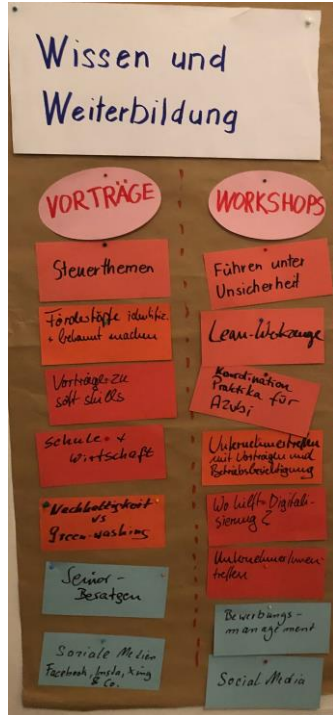 Wissen und
Weiterbildung
VORTRÄGE
Steuerthemen
Fördertöpfe identifiz.
+ bekannt machen
Vorträge zu
soft skills
Schule +
Wirtschaft
Nachhaltigkeit
vs
Green-washing
Senior-
Soziale Medien
Facebook, Insta, Xing
& Co.
WORKSHOPS
Führen unter
Unsicherheit
Lean-Werkzeuge
Koordination
Praktika für
Azubi
Unternehmertreffen
mit Vorträgen und
Betriebsbesichtigung
Wo hilft Digitali-
sierung?
Unternehmerinnen
treffen
Bewerbungs-
management
Social Media